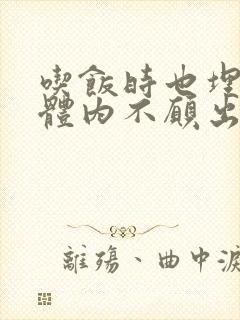 喫飯時也埋
體內不願出
離殤、曲中淚